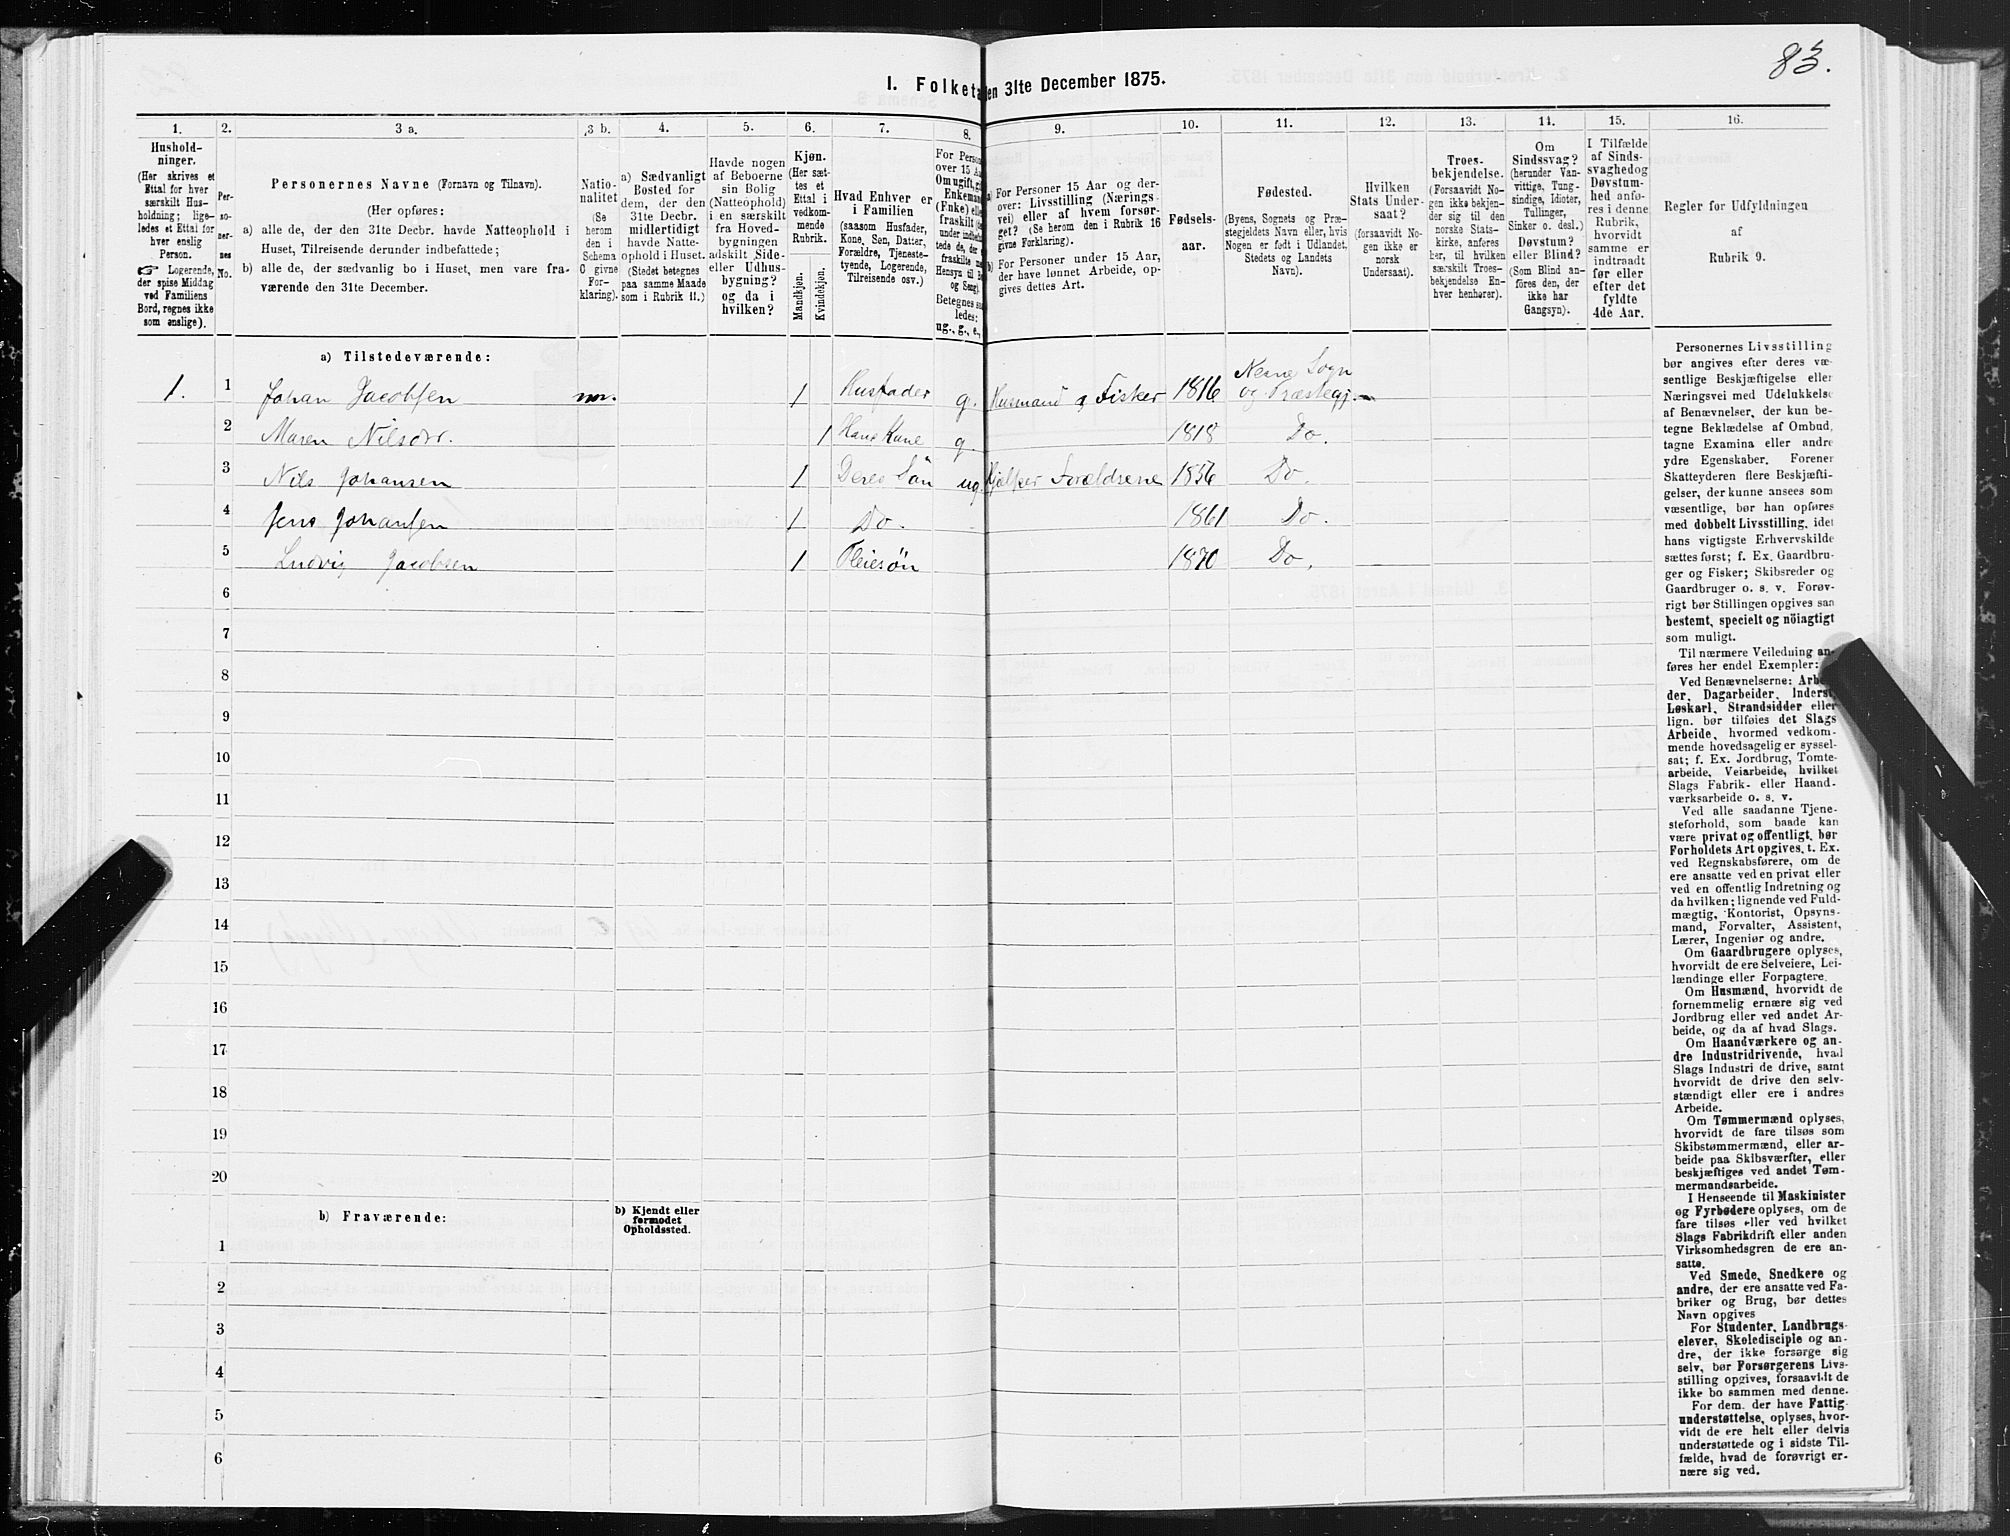 83.
I. Folketa en 31te December 1875.
1. 2. 3 a. 3 b. 4. 5. 6. 7. 8. 9. 10. 11. 12. 13. 14. 15. 16.
Hushold-
ninger.
(Her skrives et
Ettal for hver
særskilt Hus-
holdning; lige-
ledes et Ettal for
hver enslig
Person.
☞ Logerende,
der spise Middag
ved Familiens
Bord, regnes ikke
som enslige).
Per-
so-
ner-
nes
No.
Personernes Navne (Fornavn og Tilnavn).
(Her opføres:
a) alle de, der den 31te Decbr. havde Natteophold i
Huset, Tilreisende derunder indbefattede;
b) alle de, der sædvanlig bo i Huset, men vare fra-
værende den 31te December.
Natio-
nalitet
(Se
herom
den i
Schema
C givne
For-
klaring).
a) Sædvanligt
Bosted for
dem, der den
31te Decbr.
midlertidigt
havde Natte-
ophold i Huset.
(Stedet betegnes
paa samme Maade
som i Rubrik 11.)
Havde nogen
af Beboerne
sin Bolig
(Natteophold)
i en særskilt
fra Hoved-
bygningen
adskilt Side-
eller Udhus-
bygning?
og da i
hvilken?
Kjøn.
(Her sæt-
tes et
Ettal i
vedkom-
mende
Rubrik.
Mandkjøn.
Kvindekjøn.
Hvad Enhver er
i Familien
(saasom Husfader,
Kone, Søn, Datter,
Forældre, Tjeneste-
tyende, Logerende,
Tilreisende osv.)
For Perso
over 15 Aa
Om ugift, gi
Enkeman
(Enke) elle
fraskilt
under
tede de, der
fraskilte
Hensyn til
og Seng).
Betegnes
ledes:
ug., g., e.,
a) For Personer 15 Aar og der-
over: Livsstilling (Nærings-
vei) eller af hvem forsør-
get? (Se herom den i Rubrik 16
givne Forklaring).
b) For Personer under 15 Aar,
der have lønnet Arbeide, op-
gives dettes Art.
Fødsels-
aar.
Fødested.
(Byens, Sognets og Præ-
stegjeldets Navn eller, hvis
Nogen er født i Udlandet,
Stedets og Landets
Navn).
Hvilken
Stats Under-
saat?
(forsaavidt No-
gen ikke er
norsk
Undersaat).
Troes-
bekjendelse.
(Forsaavidt No-
gen ikke bekjen-
der sig til den
norske Stats-
kirke, anføres
her, til hvilken
særskilt Troes-
bekjendelse En-
hver henhører).
Om
Sindssvag?
(herunder Van-
vittige, Tung-
sindige, Idioter,
Tullinger,
Sinker o. desl.)
Døvstum?
eller Blind?
(Som Blind an-
føres den, der
ikke har
Gangsyn).
I Tilfælde
af Sinds-
svaghed og
Døvstum-
hed anfø-
res i denne
Rubrik,
hvorvidt
samme er
indtraadt
før eller
efter det
fyldte
4de Aar.
Regler for Udfyldningen
af
Rubrik 9.
a) Tilstedeværende:
1. 1 Johan Jacobsen nor. 1 Husfader g. Husmand & Fisker 1816 Nesne Sogn og Præstegj.
2 Maren Nilsdtr. 1 Hans Kone g. 1818 Do.
3 Nils Johansen 1 Deres Søn ug. Hjælper Forældrene 1856 Do.
4 Jens Johansen 1 Do. 1861 Do.
5 Ludvig Jacobsen 1 Pleiesøn 1870 Do.
6
7
8
9
10
11
12
13
14
15
16
17
18
19
20
b) Fraværende:
b) Kjendt eller
formodet
Opholdssted.
1
2
3
4
5
6
Personernes Livsstilling
bør angives efter deres væ-
sentlige Beskjæftigelse eller
Næringsvei med Udelukkelse
af Benævnelser, der kun be-
tegne Beklædelse af Ombud,
tagne Examina eller andre
ydre Egenskaber. Forener
Skatteyderen flere Beskjæfti-
gelser, der kunne ansees som
væsentlige, bør han opføres
med dobbelt Livsstilling, idet
hans vigtigste Erhvervskilde
sættes først; f. Ex. Gaardbru-
ger og Fisker; Skibsreder og
Gaardbruger o. s. v. Forøv-
rigt bør Stillingen opgives saa
bestemt, specielt og nöiagtigt
som muligt.
Til nærmere Veiledning an-
føres her endel Exempler:
Ved Benævnelserne: Arbei-
der, Dagarbeider, Inderst,
Løskarl, Strandsidder eller
lign. bør tilføies det Slags
Arbeide, hvormed vedkom-
mende hovedsagelig er syssel-
sat; f. Ex. Jordbrug, Tomte-
arbeide, Veiarbeide, hvilket
Slags Fabrik- eller Haand-
værksarbeide o. s. v.
Ved alle saadanne Tjene-
steforhold, som baade kan
være privat og offentligt, bør
Forholdets Art opgives, t. Ex.
ved Regnskabsførere, om de
ere ansatte ved en privat eller
ved en offentlig Indretning og
da hvilken; lignende ved Fuld-
mægtig, Kontorist, Opsyns-
mand, Forvalter, Assistent,
Lærer, Ingeniør og andre.
Om Gaardbrugere oplyses,
hvorvidt de ere Selveiere, Lei-
lændinge eller Forpagtere.
Om Husmænd, hvorvidt de
fornemmelig ernære sig ved
Jordbrug eller ved andet Ar-
beide, og da af hvad Slags.
Om Haandværkere og an-
dre Industridrivende, hvad
Slags Industri de drive, samt
hvorvidt de drive den selv-
stændigt eller ere i andres
Arbeide.
Om Tømmermænd oplyses,
hvorvidt de fare tilsøs som
Skibstømmermænd, eller ar-
beide paa Skibsværfter, eller
beskjæftiges ved andet Tøm-
mermandsarbeide.
I Henseende til Maskinister
og Fyrbødere oplyses, om de
fare tilsøs eller ved hvilket
Slags Fabrikdrift eller anden
Virksomhedsgren de ere an-
satte.
Ved Smede, Snedkere og
andre, der ere ansatte ved Fa-
briker og Brug, bør dettes
Navn opgives
For Studenter, Landbrugs-
elever, Skoledisciple og an-
dre, der ikke forsørge sig
selv, bør Forsørgerens Livs-
stilling opgives, forsaavidt de
ikke bo sammen med denne.
For dem, der have Fattig-
understøttelse, oplyses, hvor-
vidt de ere helt eller delvis
understøttede og i sidste Til-
fælde, hvad de forøvrigt er-
nære sig ved.